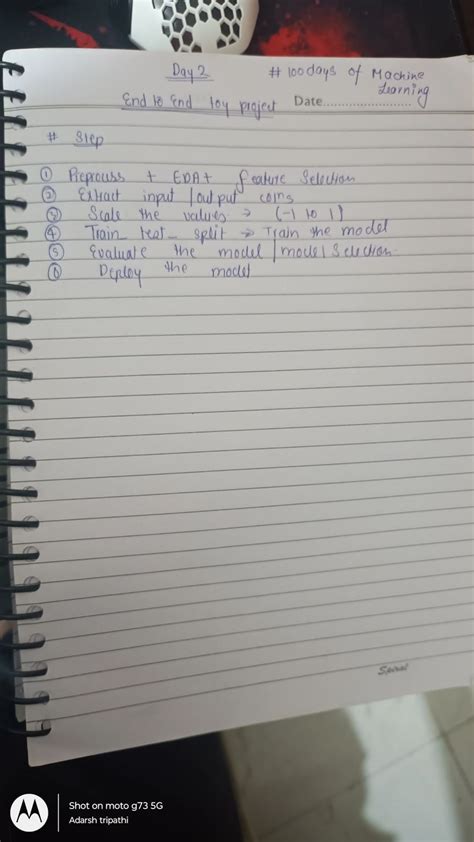 Day 2
# 100days of Machine Learning
End to End toy project
Date
# Step
① Preprocess + EDA + feature Selection
② Extract input / output cols
③ Scale the values → (-1 to 1)
④ Train_test_split → Train the model
⑤ Evaluate the model / model selection
⑥ Deploy the model
Spiral
Shot on moto g73 5G
Adarsh tripathi